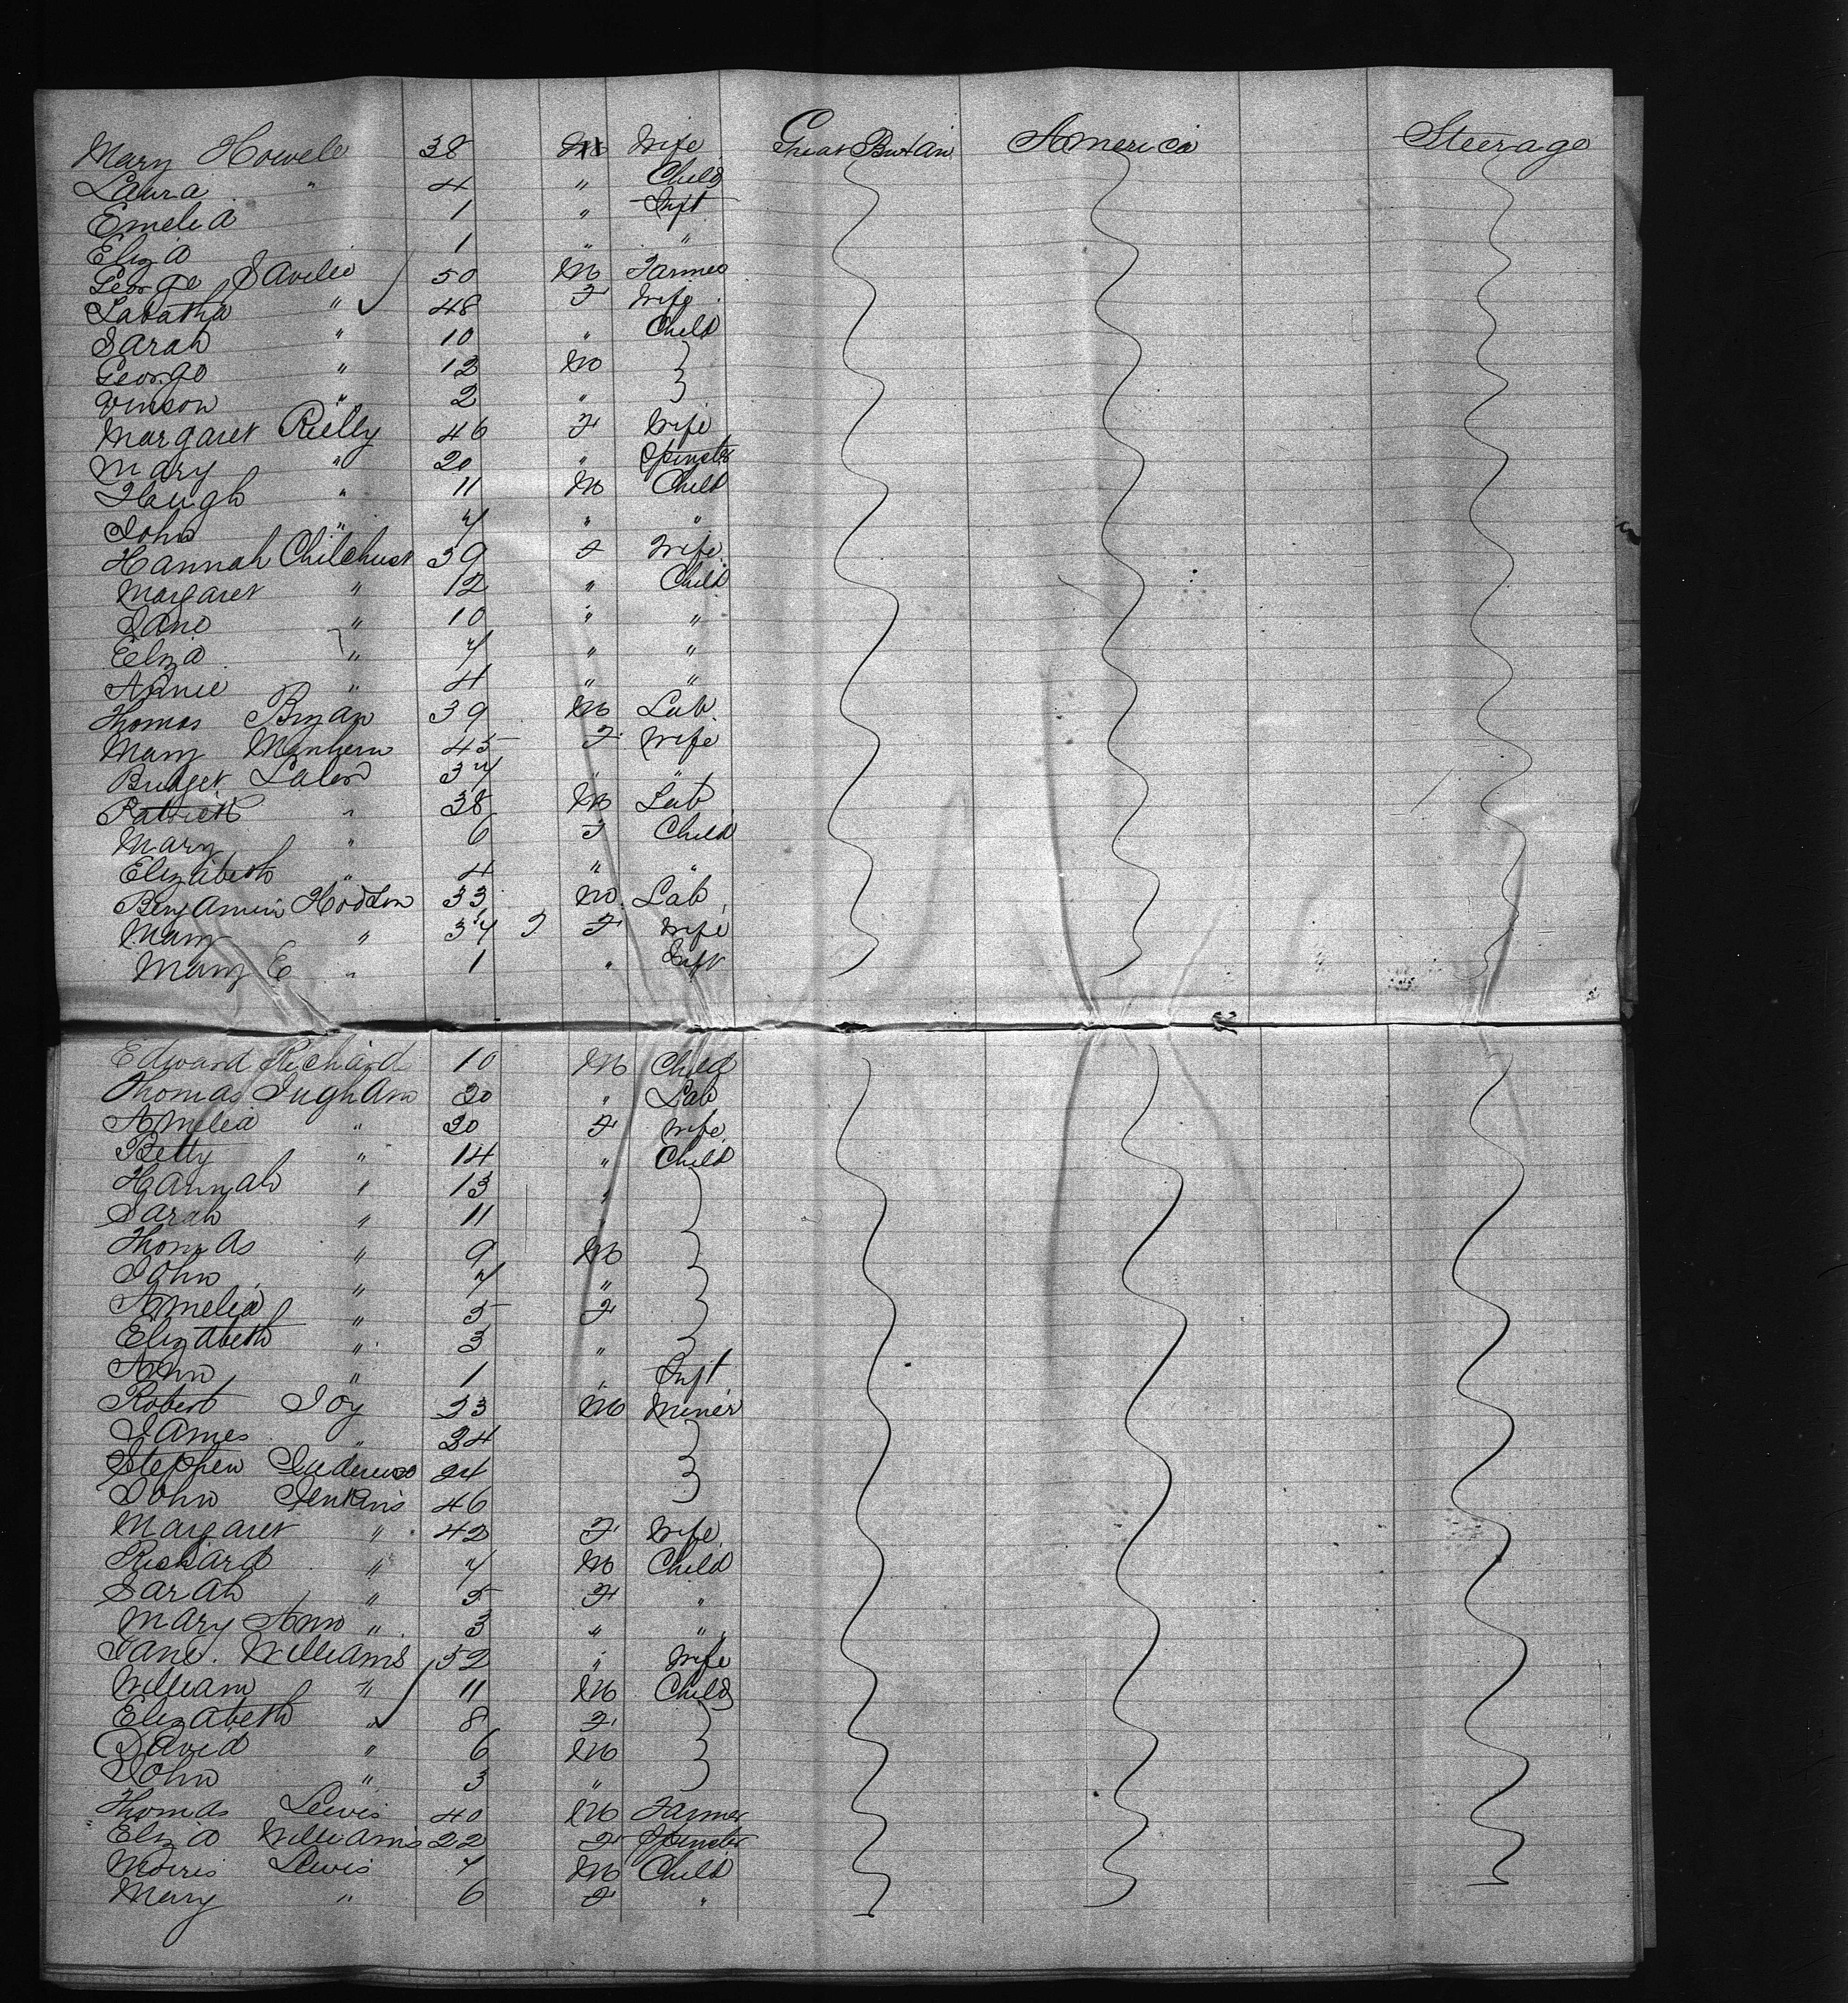 Mary Howell 38 M Wife Great Britain America Steerage
Laura " 4 " Child
Emelia 1 " Inft
Eliza 1 " "
George Savile 50 M Farmer
Tabatha " 48 F Wife
Sarah " 10 " Child
George " 12 M
Vinson " 2 "
Margaret Rielly 46 F Wife
Mary " 20 " Spinster
Hough " 11 M Child
John " 7 " "
Hannah Chilchust 39 F Wife
Margaret " 12 " Child
Jane " 10 " "
Eliza " 7 " "
Annie " 4 " "
Thomas Bryan 39 M Lab
Mary 45 F Wife
Bridget Lalor 37 " "
Patrick " 38 M Lab
Mary " 6 F Child
Elizabeth " 4 " "
Benjamin Hodson 33 M Lab
Mary " 37 F Wife
Mary E " 1 " Inft
Edward Richard 10 M Child
Thomas Ingham 30 " Lab
Amelia " 30 F Wife
Betty " 14 " Child
Hannah " 13 "
Sarah " 11 "
Thomas " 9 M
John " 7 "
Amelia " 5 F
Elizabeth " 3 "
Ann " 1 " Inft
Robert Joy 23 M Miner
James " 24
Stephen 24
John Jenkins 46
Margaret " 42 F Wife
Richard " 7 M Child
Sarah " 5 F "
Mary Ann " 3 " "
Jane Williams 52 " Wife
William " 11 M Child
Elizabeth " 8 F
David " 6 M
John " 3 "
Thomas Lewis 40 M Farmer
Eliza Williams 22 F Spinster
Morris Lewis 7 M Child
Mary " 6 F "